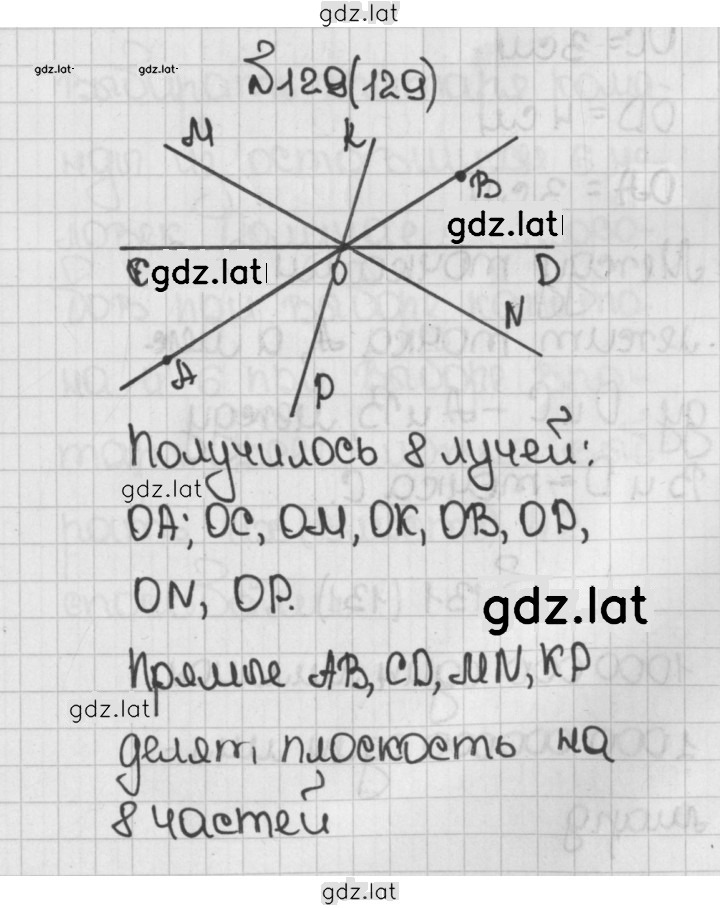 gdz.lat
gdz.lat
gdz.lat
№129(129)
M K
B
gdz.lat
C gdz.lat O D
N
A
P
Получилось 8 лучей:
gdz.lat
OA; OC, OM, OK, OB, OD,
ON, OP.
gdz.lat
Прямые AB, CD, MN, KP
gdz.lat
делят плоскость на
8 частей
gdz.lat